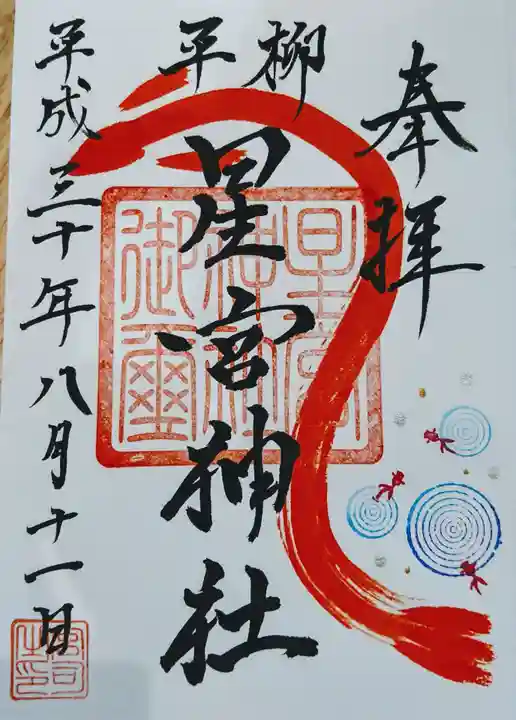 奉拝
柳平
星宮神社
平成三十年八月十一日
星宮神社御璽
宮司之印